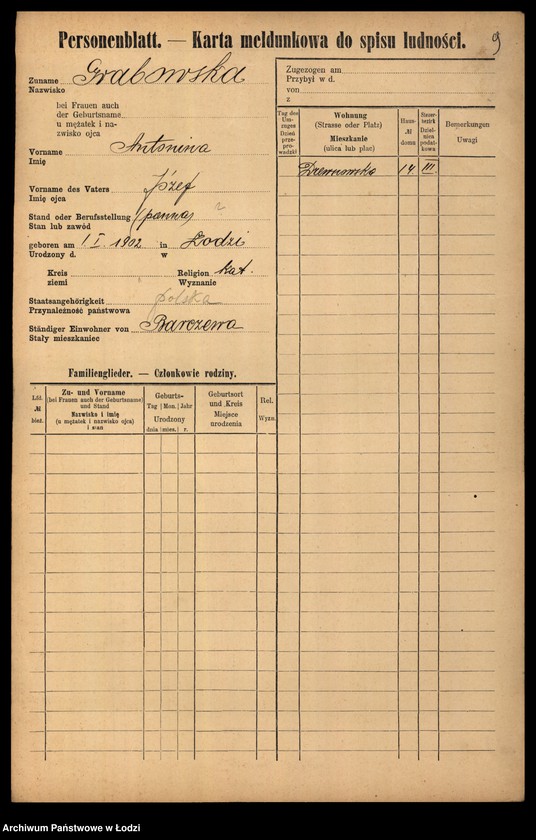 Personenblatt. — Karta meldunkowa do spisu ludności.
9
Zuname Grabowska
Nazwisko
bei Frauen auch
der Geburtsname
u mężatek i na-
zwisko ojca
Vorname Antonina
Imię
Vorname des Vaters Józef
Imię ojca
Stand oder Berufsstellung (panna)
Stan lub zawód
geboren am 1. I. 1902 in Łodzi
Urodzony d. w
Kreis Religion kat.
ziemi Wyznanie
Staatsangehörigkeit polska
Przynależność państwowa
Ständiger Einwohner von Barczewa
Stały mieszkaniec
Familienglieder. — Członkowie rodziny.
Lfd. № bież.
Zu- und Vorname
(bei Frauen auch der Geburtsname)
und Stand
Nazwisko i imię
(u mężatek i nazwisko ojca)
i stan
Geburts-
Tag Mon. Jahr
Urodzony
dnia mies. r.
Geburtsort
und Kreis
Miejsce
urodzenia
Rel.
Wyzn.
Zugezogen am
Przybył w d.
von
z
Tag des
Um-
zuges
Dzień
prze-
prowadzki
Wohnung
(Strasse oder Platz)
Mieszkanie
(ulica lub plac)
Haus-
№
domu
Steuer-
bezirk
Dziel-
nica
podat-
kowa
Bemerkungen
Uwagi
Drewnowska 14 III.
Archiwum Państwowe w Łodzi